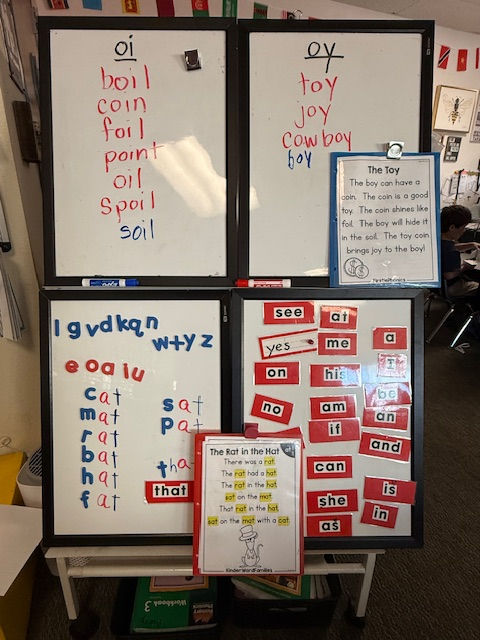 oi
boil
coin
foil
point
oil
spoil
soil
oy
toy
joy
cowboy
boy
The Toy
The boy can have a
coin. The coin is a good
toy. The coin shines like
foil. The boy will hide it
in the soil. The toy coin
brings joy to the boy!
l g v d k q n
w t y z
e o a i u
cat
mat
rat
bat
hat
fat
sat
pat
tha
that
The Rat in the Hat
There was a rat.
The rat had a hat.
The rat in the hat
sat on the mat.
That rat in the hat
sat on the mat with a cat.
KinderWordFamilies
see
at
yes
me
a
on
his
I
be
no
am
an
if
and
can
is
she
in
as
Workbook 3